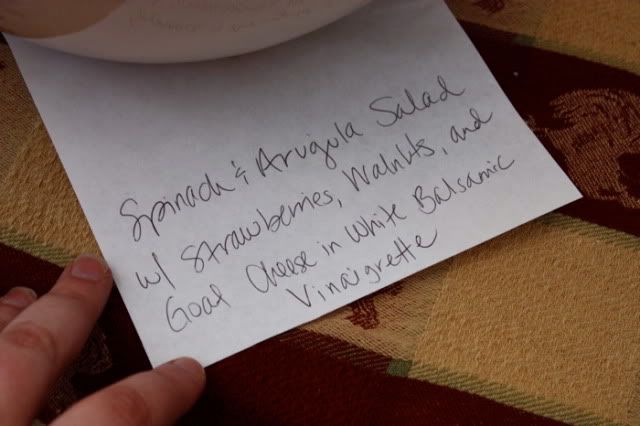 Spinach & Arugula Salad
w/ Strawberries, Walnuts, and
Goat Cheese in White Balsamic
Vinaigrette